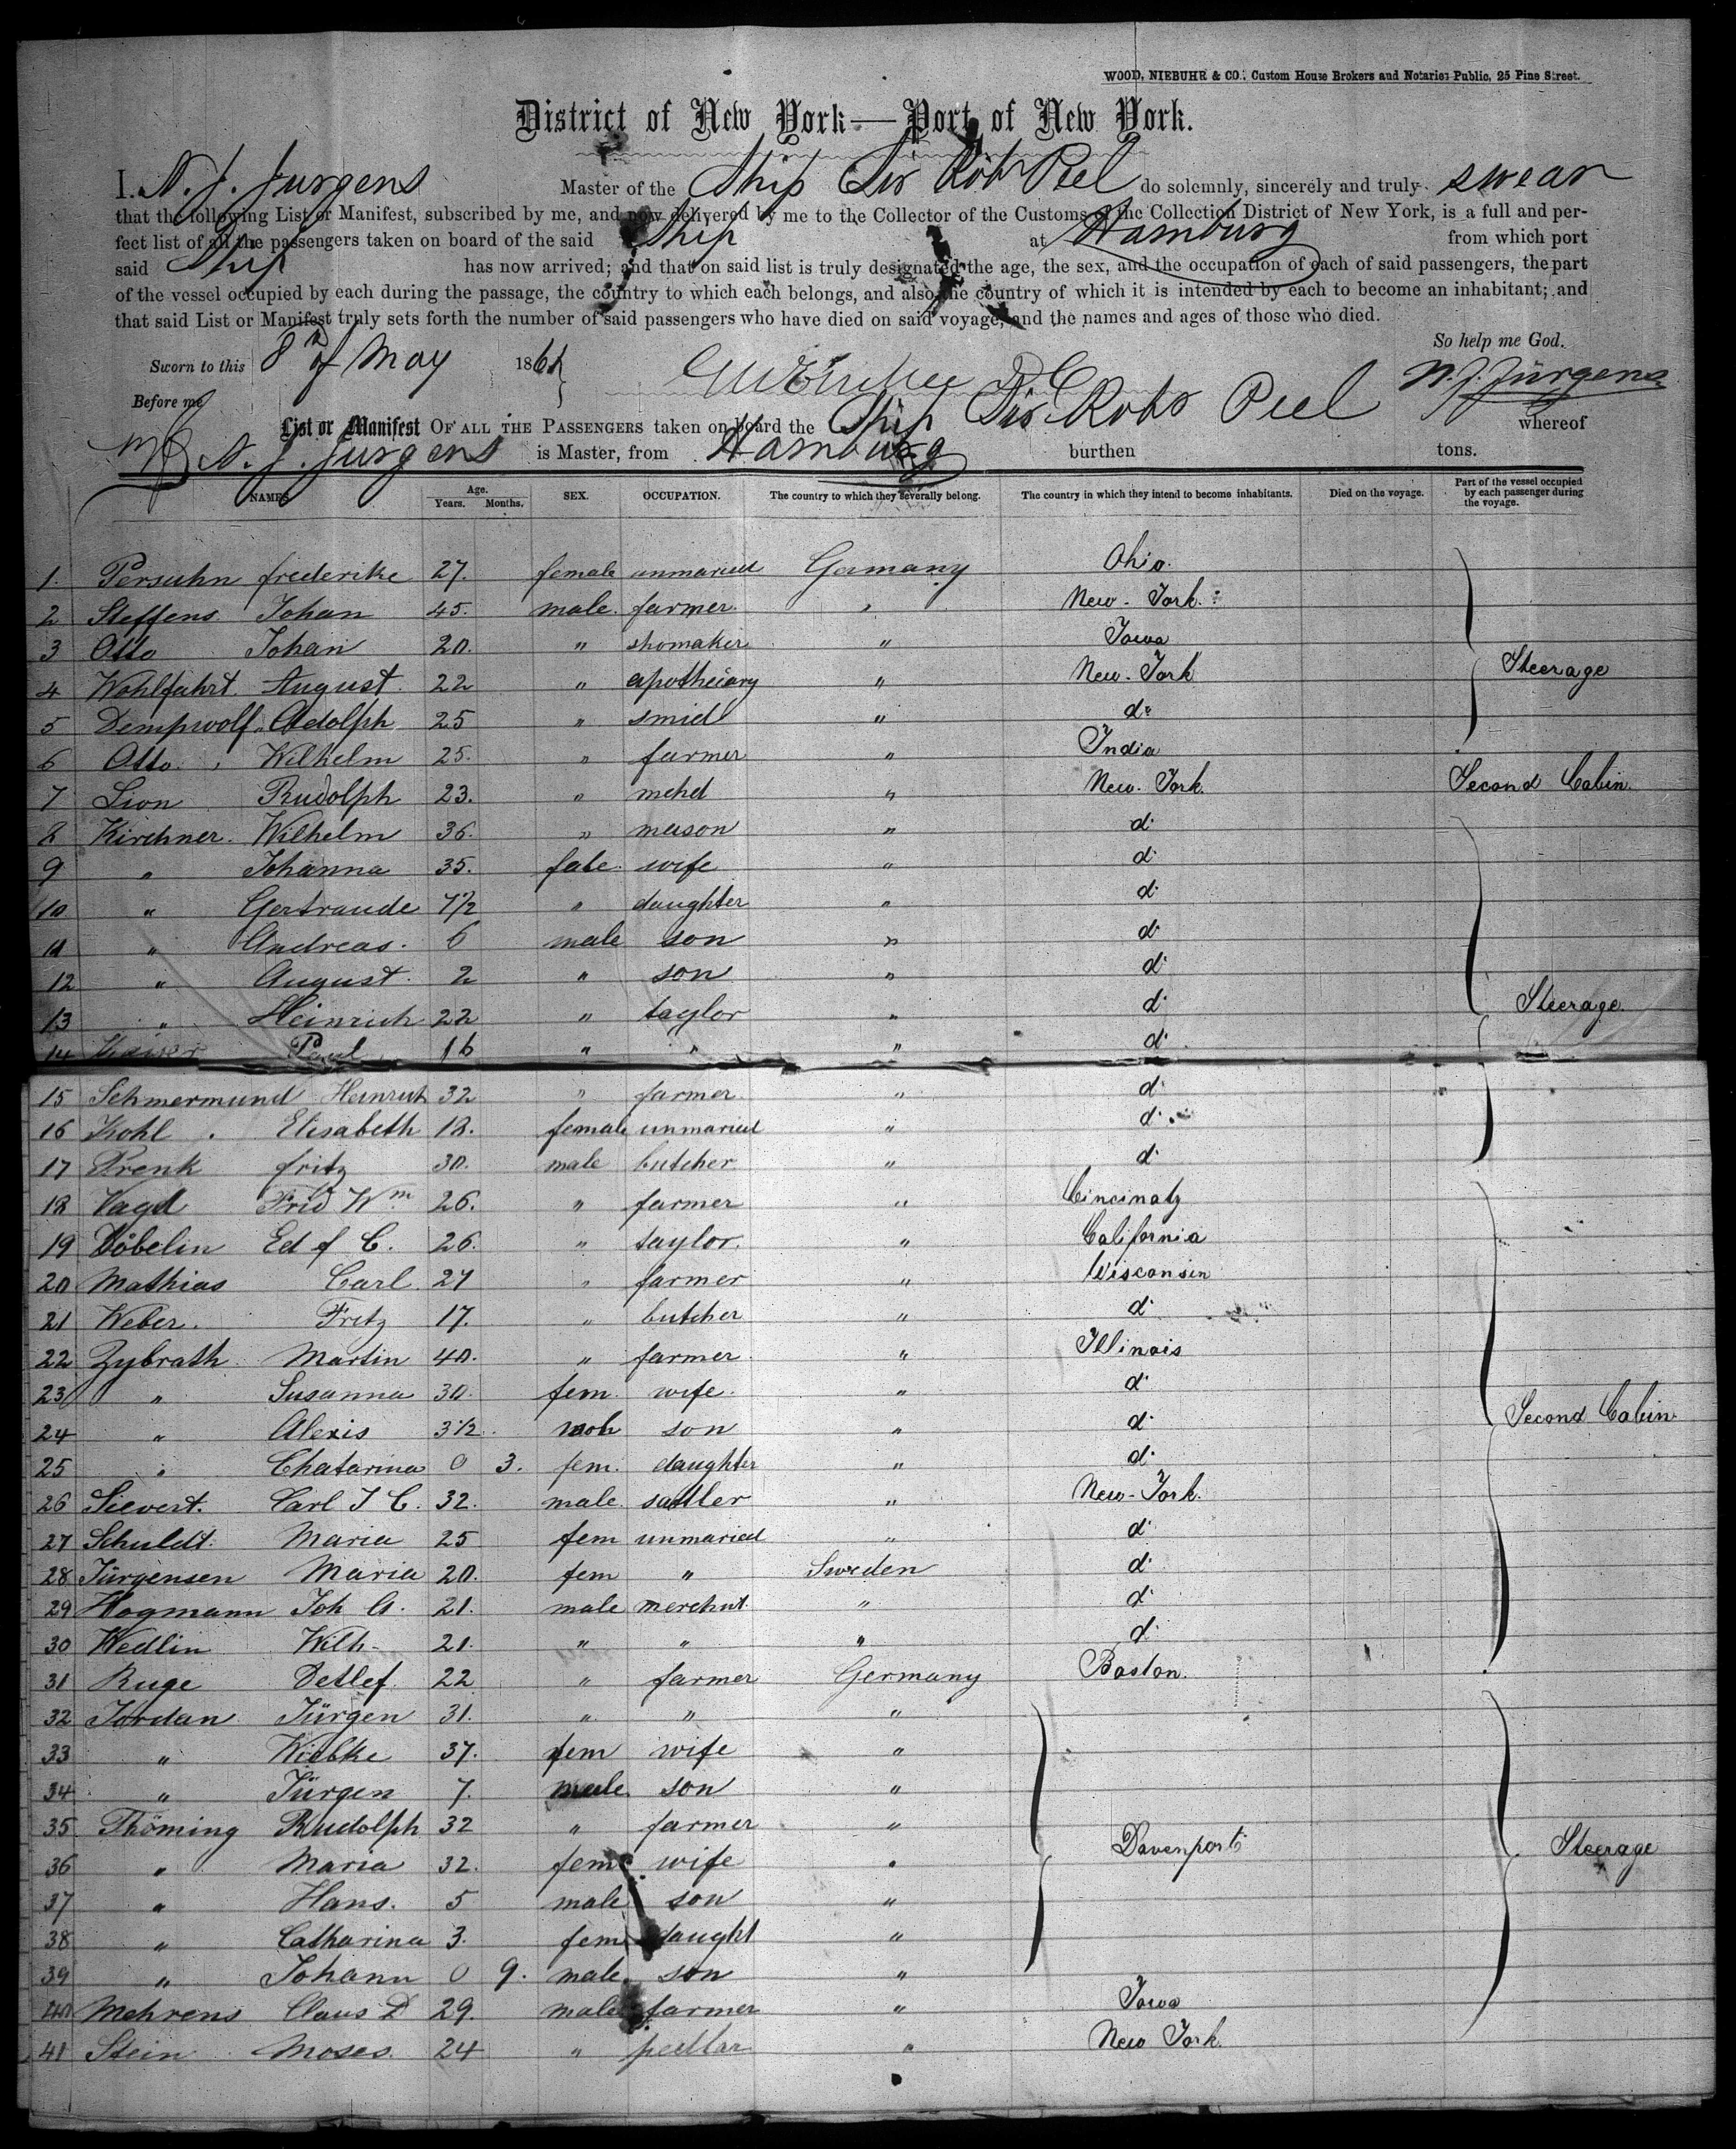 WOOD, NIEBUHR & CO., Custom House Brokers and Notaries Public, 25 Pine Street.
District of New York—Port of New York.
I, N. J. Jurgens Master of the Ship Sir Rob Peel do solemnly, sincerely and truly swear
that the following List or Manifest, subscribed by me, and now delivered by me to the Collector of the Customs of the Collection District of New York, is a full and per-
fect list of all the passengers taken on board of the said Ship at Hamburg from which port
said Ship has now arrived; and that on said list is truly designated the age, the sex, and the occupation of each of said passengers, the part
of the vessel occupied by each during the passage, the country to which each belongs, and also the country of which it is intended by each to become an inhabitant; and
that said List or Manifest truly sets forth the number of said passengers who have died on said voyage, and the names and ages of those who died.
So help me God.
Sworn to this 8th of May 186
N. J. Jürgens
Before me
List or Manifest OF ALL THE PASSENGERS taken on board the Ship Sir Robt Peel whereof
N. J. Jurgens is Master, from Hamburg burthen tons.
NAMES. Age. Years. Months. SEX. OCCUPATION. The country to which they severally belong. The country in which they intend to become inhabitants. Died on the voyage. Part of the vessel occupied by each passenger during the voyage.
1. Persuhn frederike 27. female unmaried Germany Ohio.
2 Steffens Johan 45. male. farmer. " New-York.
3 Otto Johan 20. " shomaker " Iowa
4 Wohlfahrt August. 22 " apotheciary " New-York Steerage
5 Dempwolf Adolph 25 " smid " do
6 Otto Wilhelm 25. " farmer " India
7 Lion Rudolph 23. " mchd " New-York. Second Cabin.
8 Kirchner. Wilhelm 36. " mason " d.
9 " Johanna 35. fale. wife " d.
10 " Gertraude 7 1/2 " daughter " d.
11 " Andreas. 6 male son " d.
12 " August. 2 " son " d.
13 " Heinrich 22 " taylor " d. Steerage.
14 Kaiser Paul 16 " " " d.
15 Schmermund Heinrich 32 " farmer. " d.
16 Kohl Elisabeth 18. female unmaried " d.
17 Prenk fritz 30. male butcher " d.
18 Vagd Frid Wm 26. " farmer " Cincinaty
19 Döbelin Ed f C. 26. " taylor. " California
20 Mathias Carl 27 " farmer " Wisconsin
21 Weber. Fritz 17. " butcher " d.
22 Zybrath Martin 40. " farmer. " Illinois
23 " Susanna 30. fem. wife. " d.
24 " Alexis 3 1/2 son " d. Second Cabin
25 " Chatarina 0 3. fem. daughter " d.
26 Sievert. Carl J C. 32. male. sattler " New-York.
27 Schuldt. Maria 25 fem unmaried " d.
28 Jürgensen Maria 20. fem " Sweden d.
29 Hogmann Joh A. 21. male merchnt. " d.
30 Wedlin Wilh- 21. " " " d.
31 Ruge Detlef. 22 " farmer Germany Boston.
32 Jordan Jürgen 31. " " "
33 " Wiebke 37. fem wife "
34 " Jürgen 7. male. son "
35 Thöming Rudolph 32 " farmer " Davenport Steerage
36 " Maria 32. fem wife "
37 " Hans. 5 male son "
38 " Catharina 3. fem daught "
39 " Johann 0 9. male. son "
40 Mehrens Claus D 29. male farmer " Iowa
41 Stein Moses. 24 " pedlar " New York.